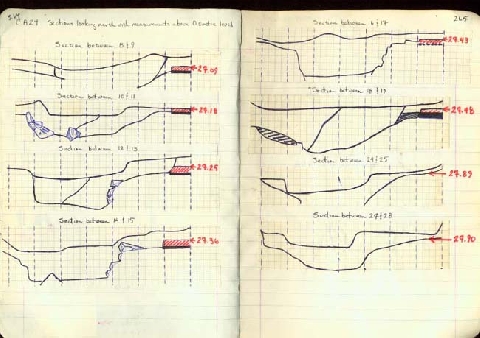 CA29 Sections looking north with measurements above
Section between 8 & 9
29.09
Section between 10 & 11
29.18
Section between
29.29
Section between 14 & 15
29.36
265
Section between 6 & 17
29.43
Section between 18 & 19
29.48
Section between 24 & 25
29.89
Section between 27 & 28
29.90